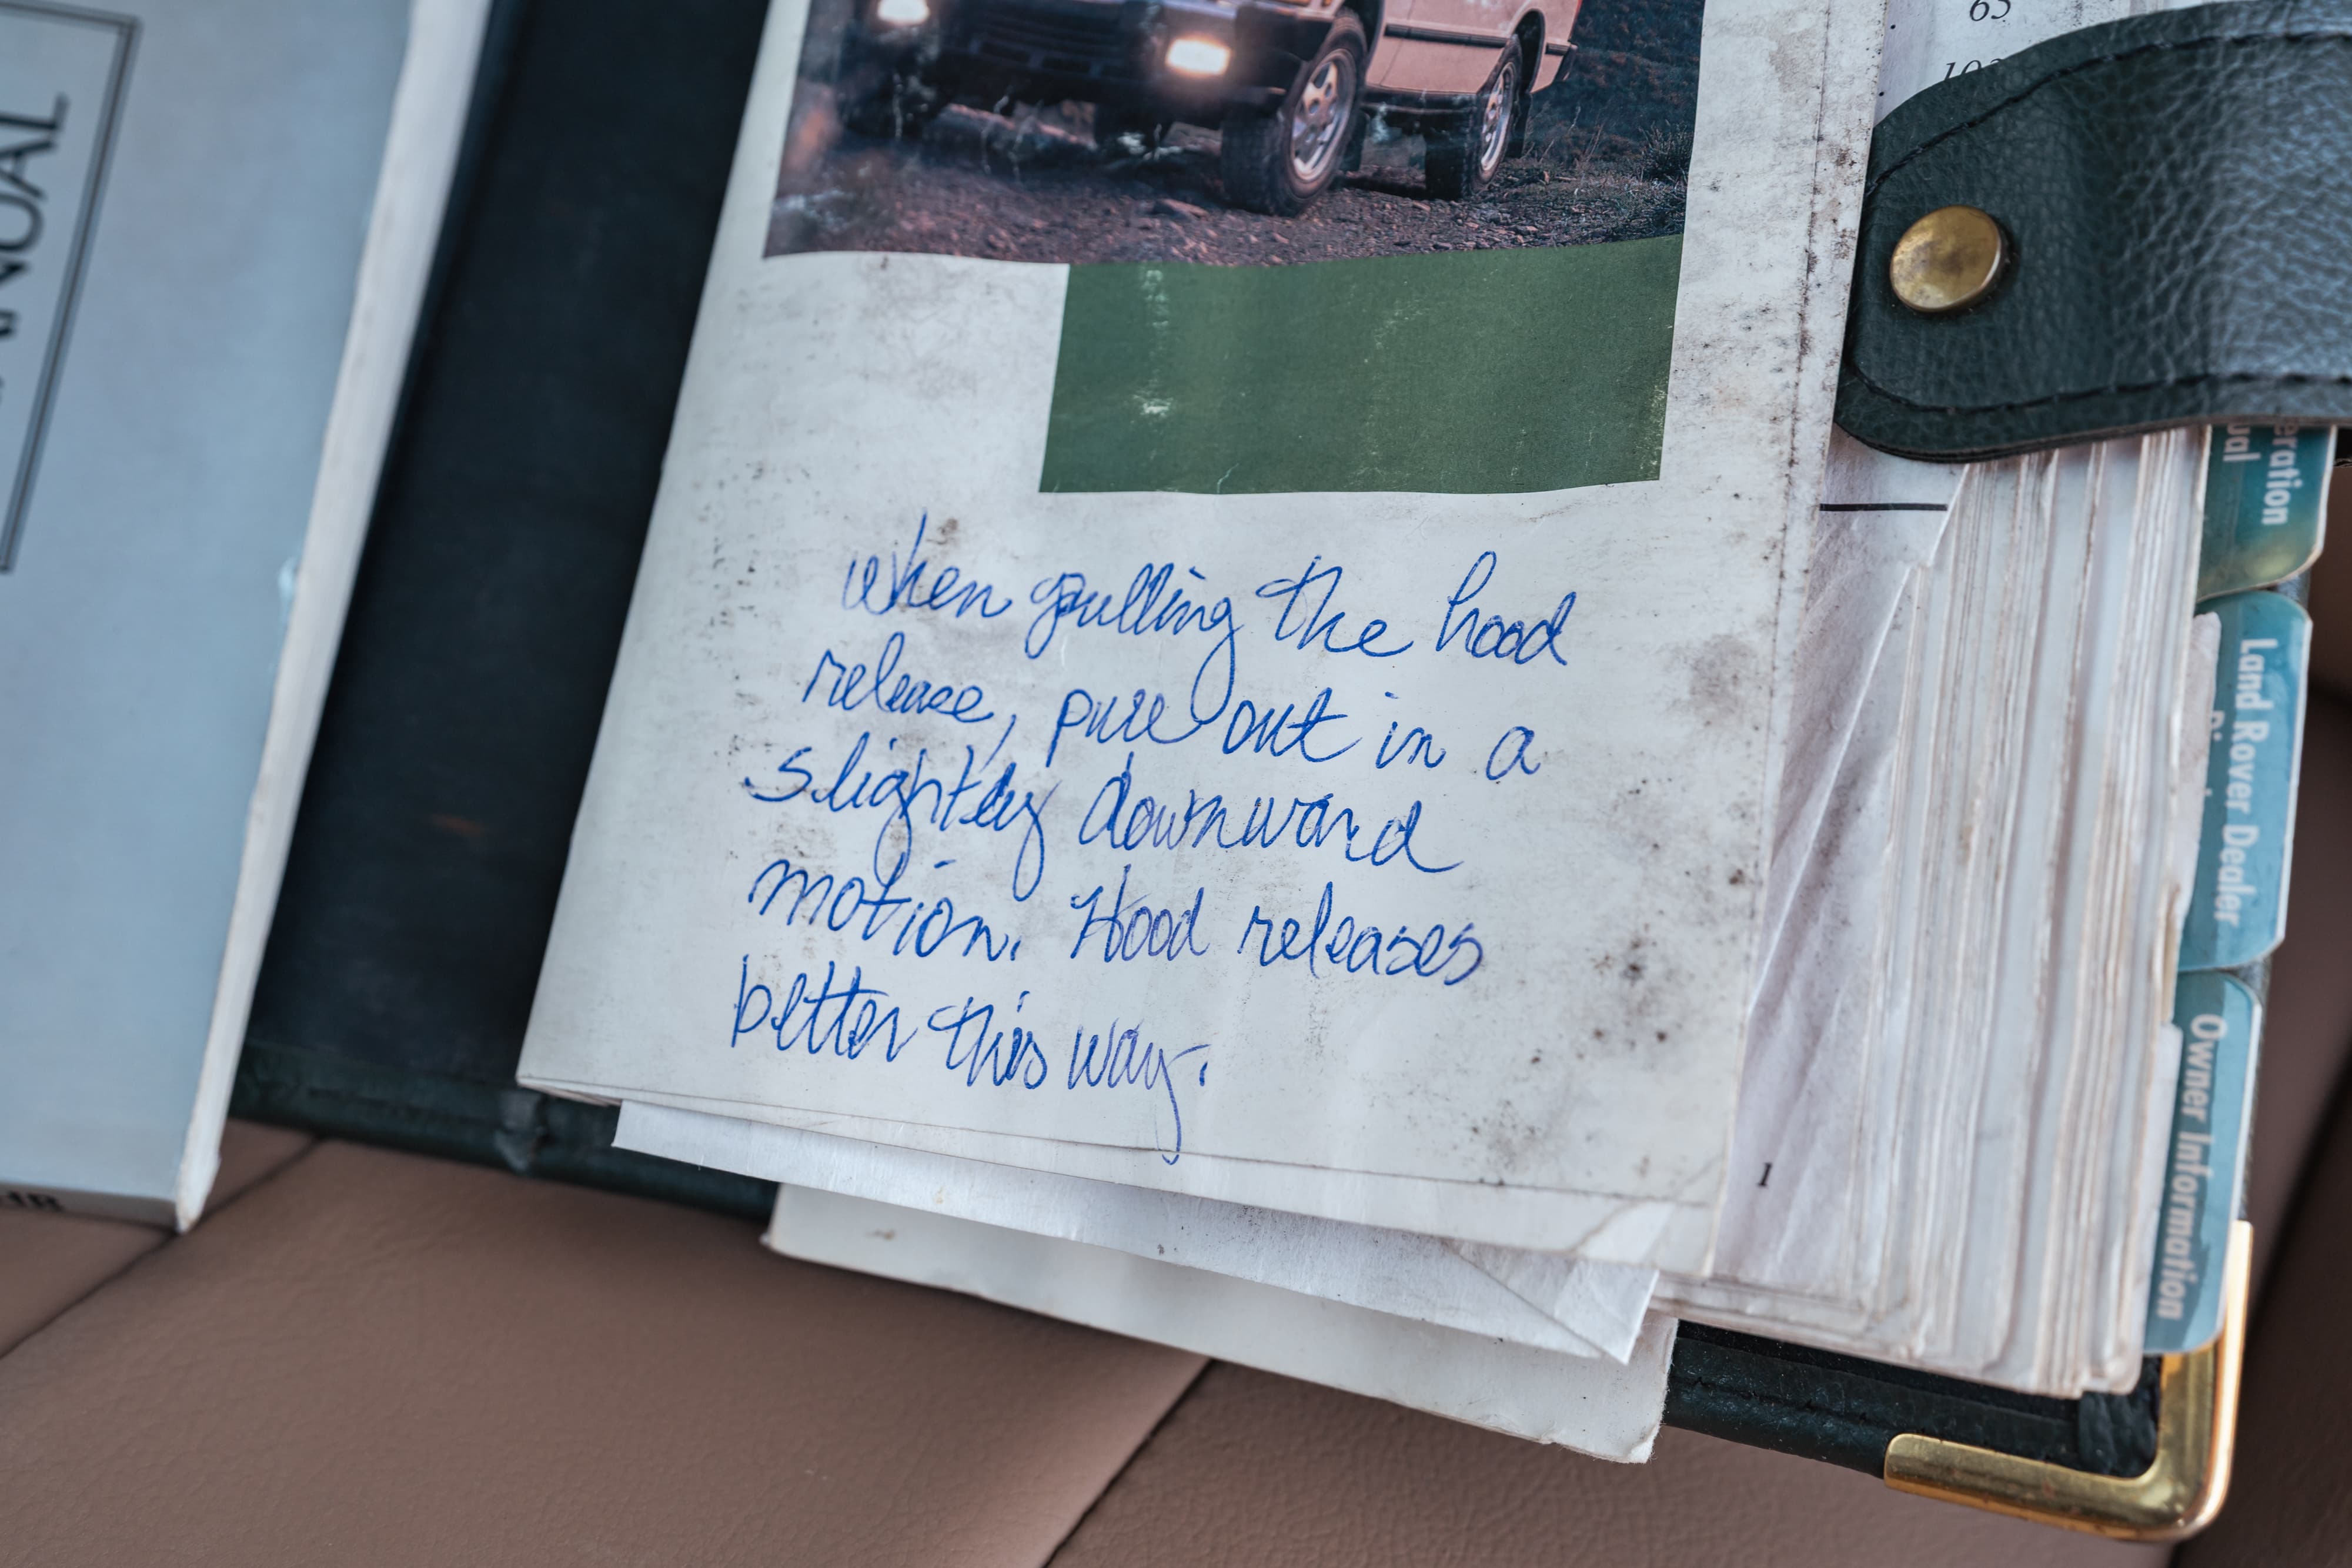 when pulling the hood
release, pull out in a
slightly downward
motion. Hood releases
better this way.
65
1
Land Rover Dealer
Owner Information